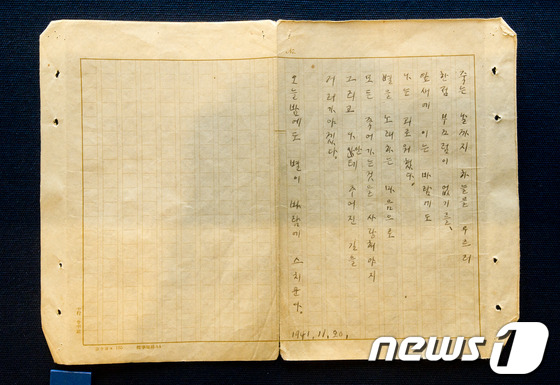 죽는 날까지 하늘을 우르러
한점 부끄럼이 없기를,
잎새에 이는 바람에도
나는 괴로워했다.
별을 노래하는 마음으로
모든 죽어가는것을 사랑해야지
그리고 나안테 주어진 길을
거러가야겠다.
오늘밤에도 별이 바람에 스치운다.
1941.11.20.
news1